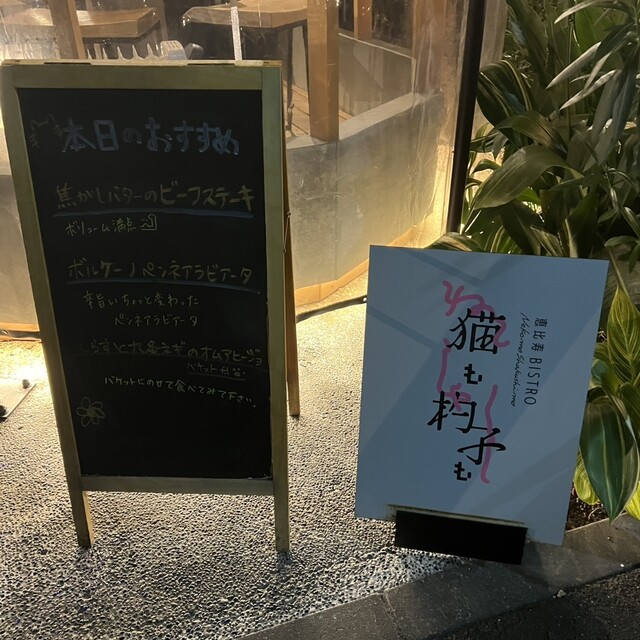 本日のおすすめ
焦がしバターのビーフステーキ
ボリューム満点
ボルケーノペンネアラビアータ
辛いちょっと変わった
ペンネアラビアータ
らすと九条ネギのオムアヒージョ
バケット付
バケットにのせて食べてみて下さい。
恵比寿 BISTRO
Nekomo Shakushimo
ねこ
猫も
しゃくし
杓子も